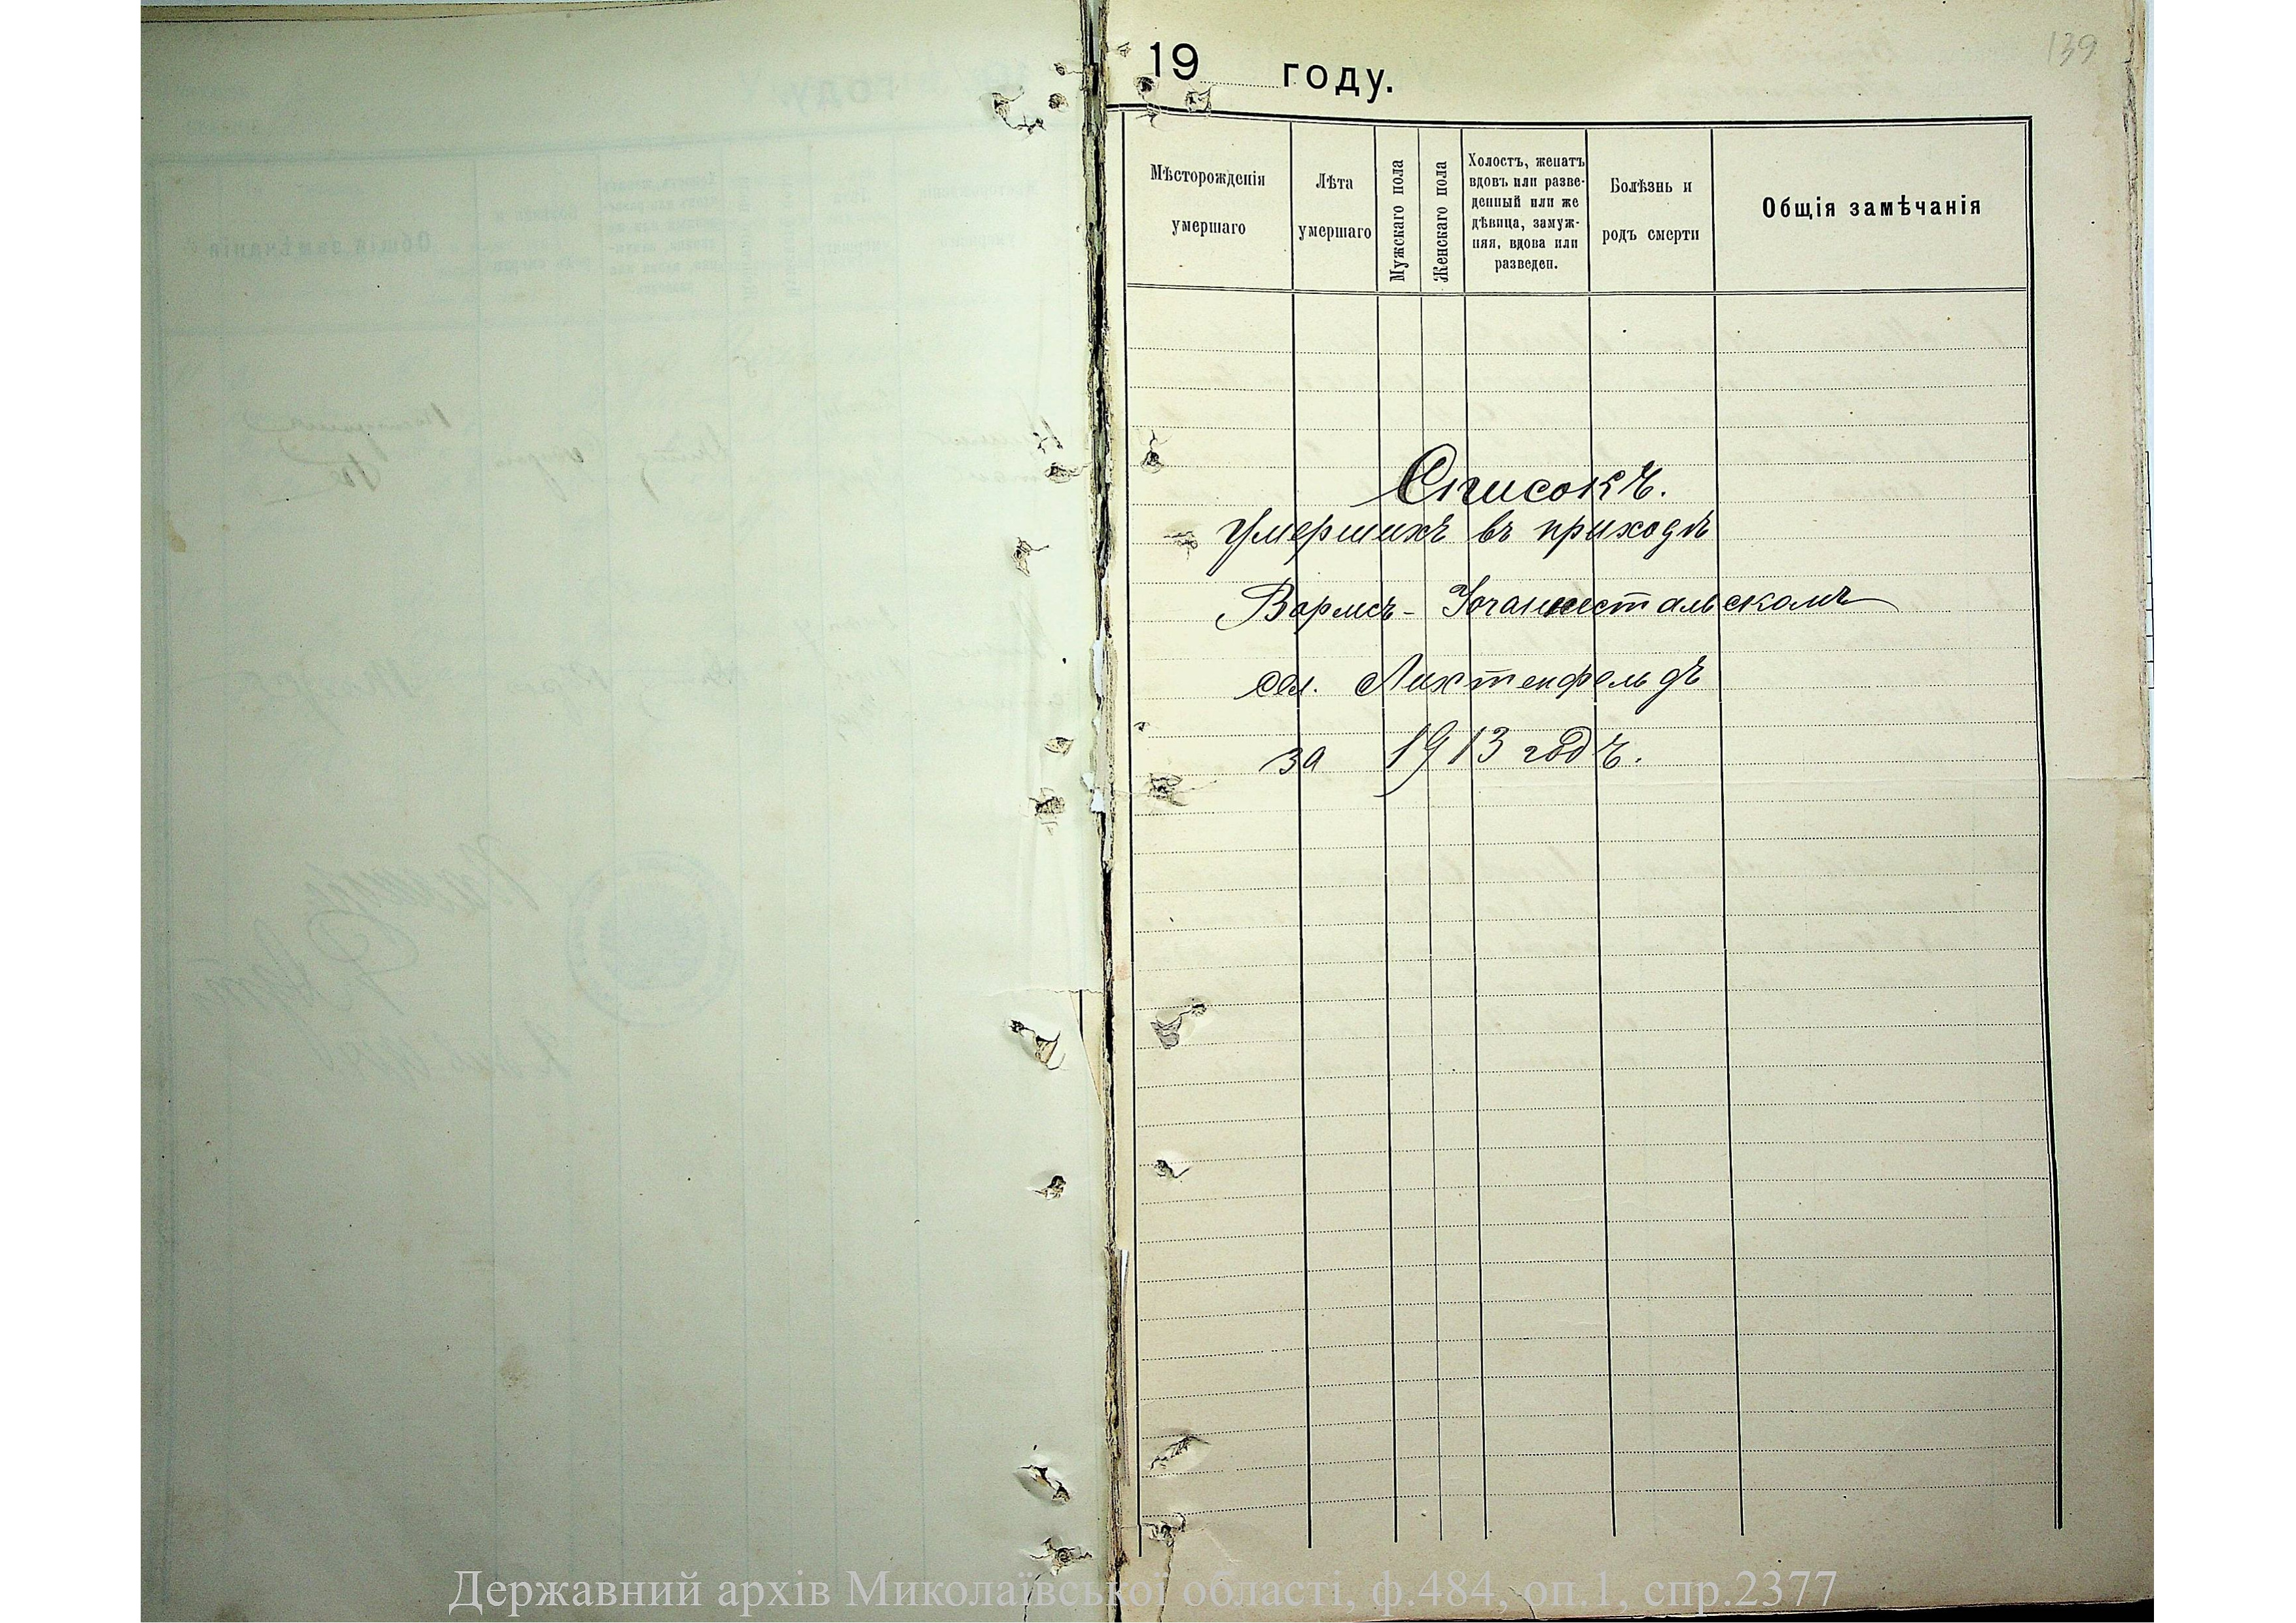 139
19 году.
Мѣсторожденія умершаго
Лѣта умершаго
Мужскаго пола
Женскаго пола
Холостъ, женатъ
вдовъ или разве-
денный или же
дѣвица, замуж-
няя, вдова или
разведен.
Болѣзнь и родъ смерти
Общія замѣчанія
Списокъ.
умершихъ въ приходѣ
Вормсъ- Іоганнестальскомъ
сел. Лихтенфельдъ
за 1913 годъ.
Державний архів Миколаївської області, ф.484, оп.1, спр.2377